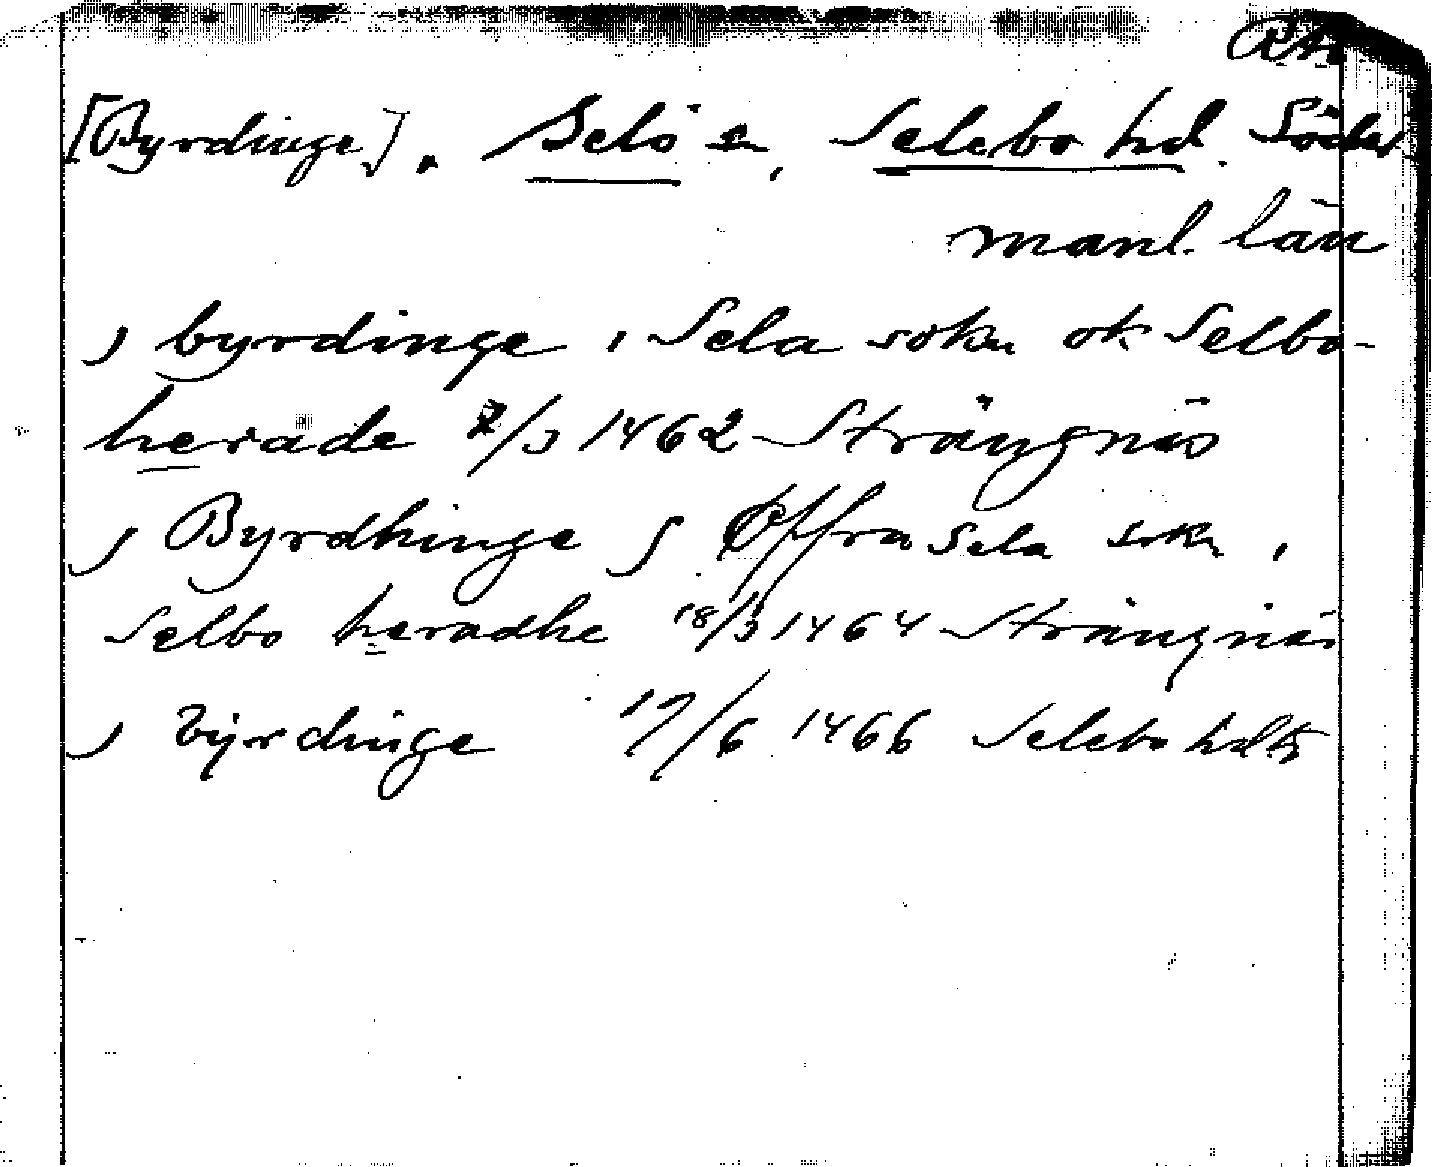 RA
[Byrdinge]. Selö sn, Selebo hd. Söder
manl. län
j byrdinge i Sela sokn ok Selbo-
herade 7/3 1462 Strängnäs
j Byrdhinge j Offra Sela sokn i
Selbo heradhe 18/3 1464 Strängnäs
j Byrdinge 17/6 1466 Selebo hdtg